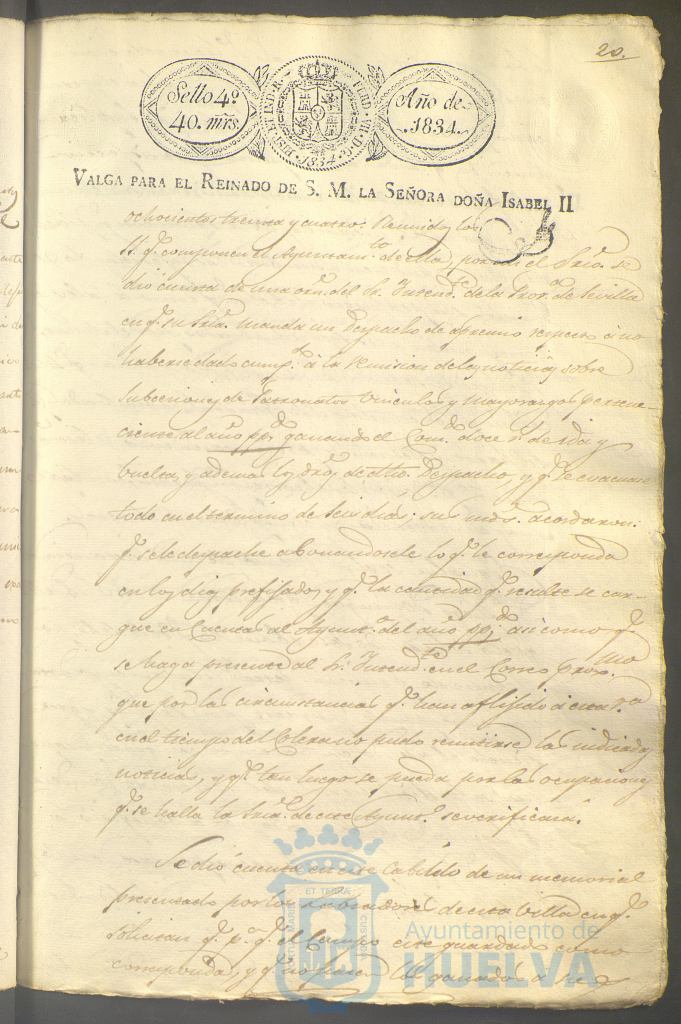 20.
Sello 4º
40. mr̃s.
HISP. ET IND. R.
FERD. VII. D.
1834
Año de
1834.
VALGA PARA EL REINADO DE S. M. LA SEÑORA DOÑA ISABEL II
ochocientos treinta y cuatro: Reunidos los
q.e componen el Ayuntam.to de ella, por mi el Srio. se
dió cuenta de una orn. del Sr. Intend.te de la Prov.a de Sevilla
en q.e su Sria. manda un Despacho de apremio respecto á no
haberse dado cump.to á la remision de las noticias sobre
subcesiones de Patronatos vinculos y mayorazgos pertene-
ciente al año pp.do ganando el Com.do doce r.s de ida y
buelta, y ademas los dros. de dho. Despacho, y q.e se evacuase
todo en el termino de seis dias: sus mds. acordaron:
q.e se le despache abonandosele lo q.e le corresponda
en los dias prefijados, y q.e la cantidad q.e resulte se car-
gue en Cuentas al Ayunt.o del año pp.do asi como q.e
se haga presente al Sr. Intend.te en el Correo prox.mo
que por las circunstancias q.e han aflijido á esta
en el tiempo del Colera no pudo remitirse las indicadas
noticias, y q.e tan luego se pueda por las ocupaciones
q.e se halla la Sria. de este Ayunt.o se verificará.
Se dió cuenta en este Cabildo de un memorial
presentado por los labradores de esta Villa en q.e
solicitan q.e p.a q.e el Campo esté guardado como
corresponda, y q.e no los ganados
ET TERRÆ
CUSTODIA
Ayuntamiento de
HUELVA